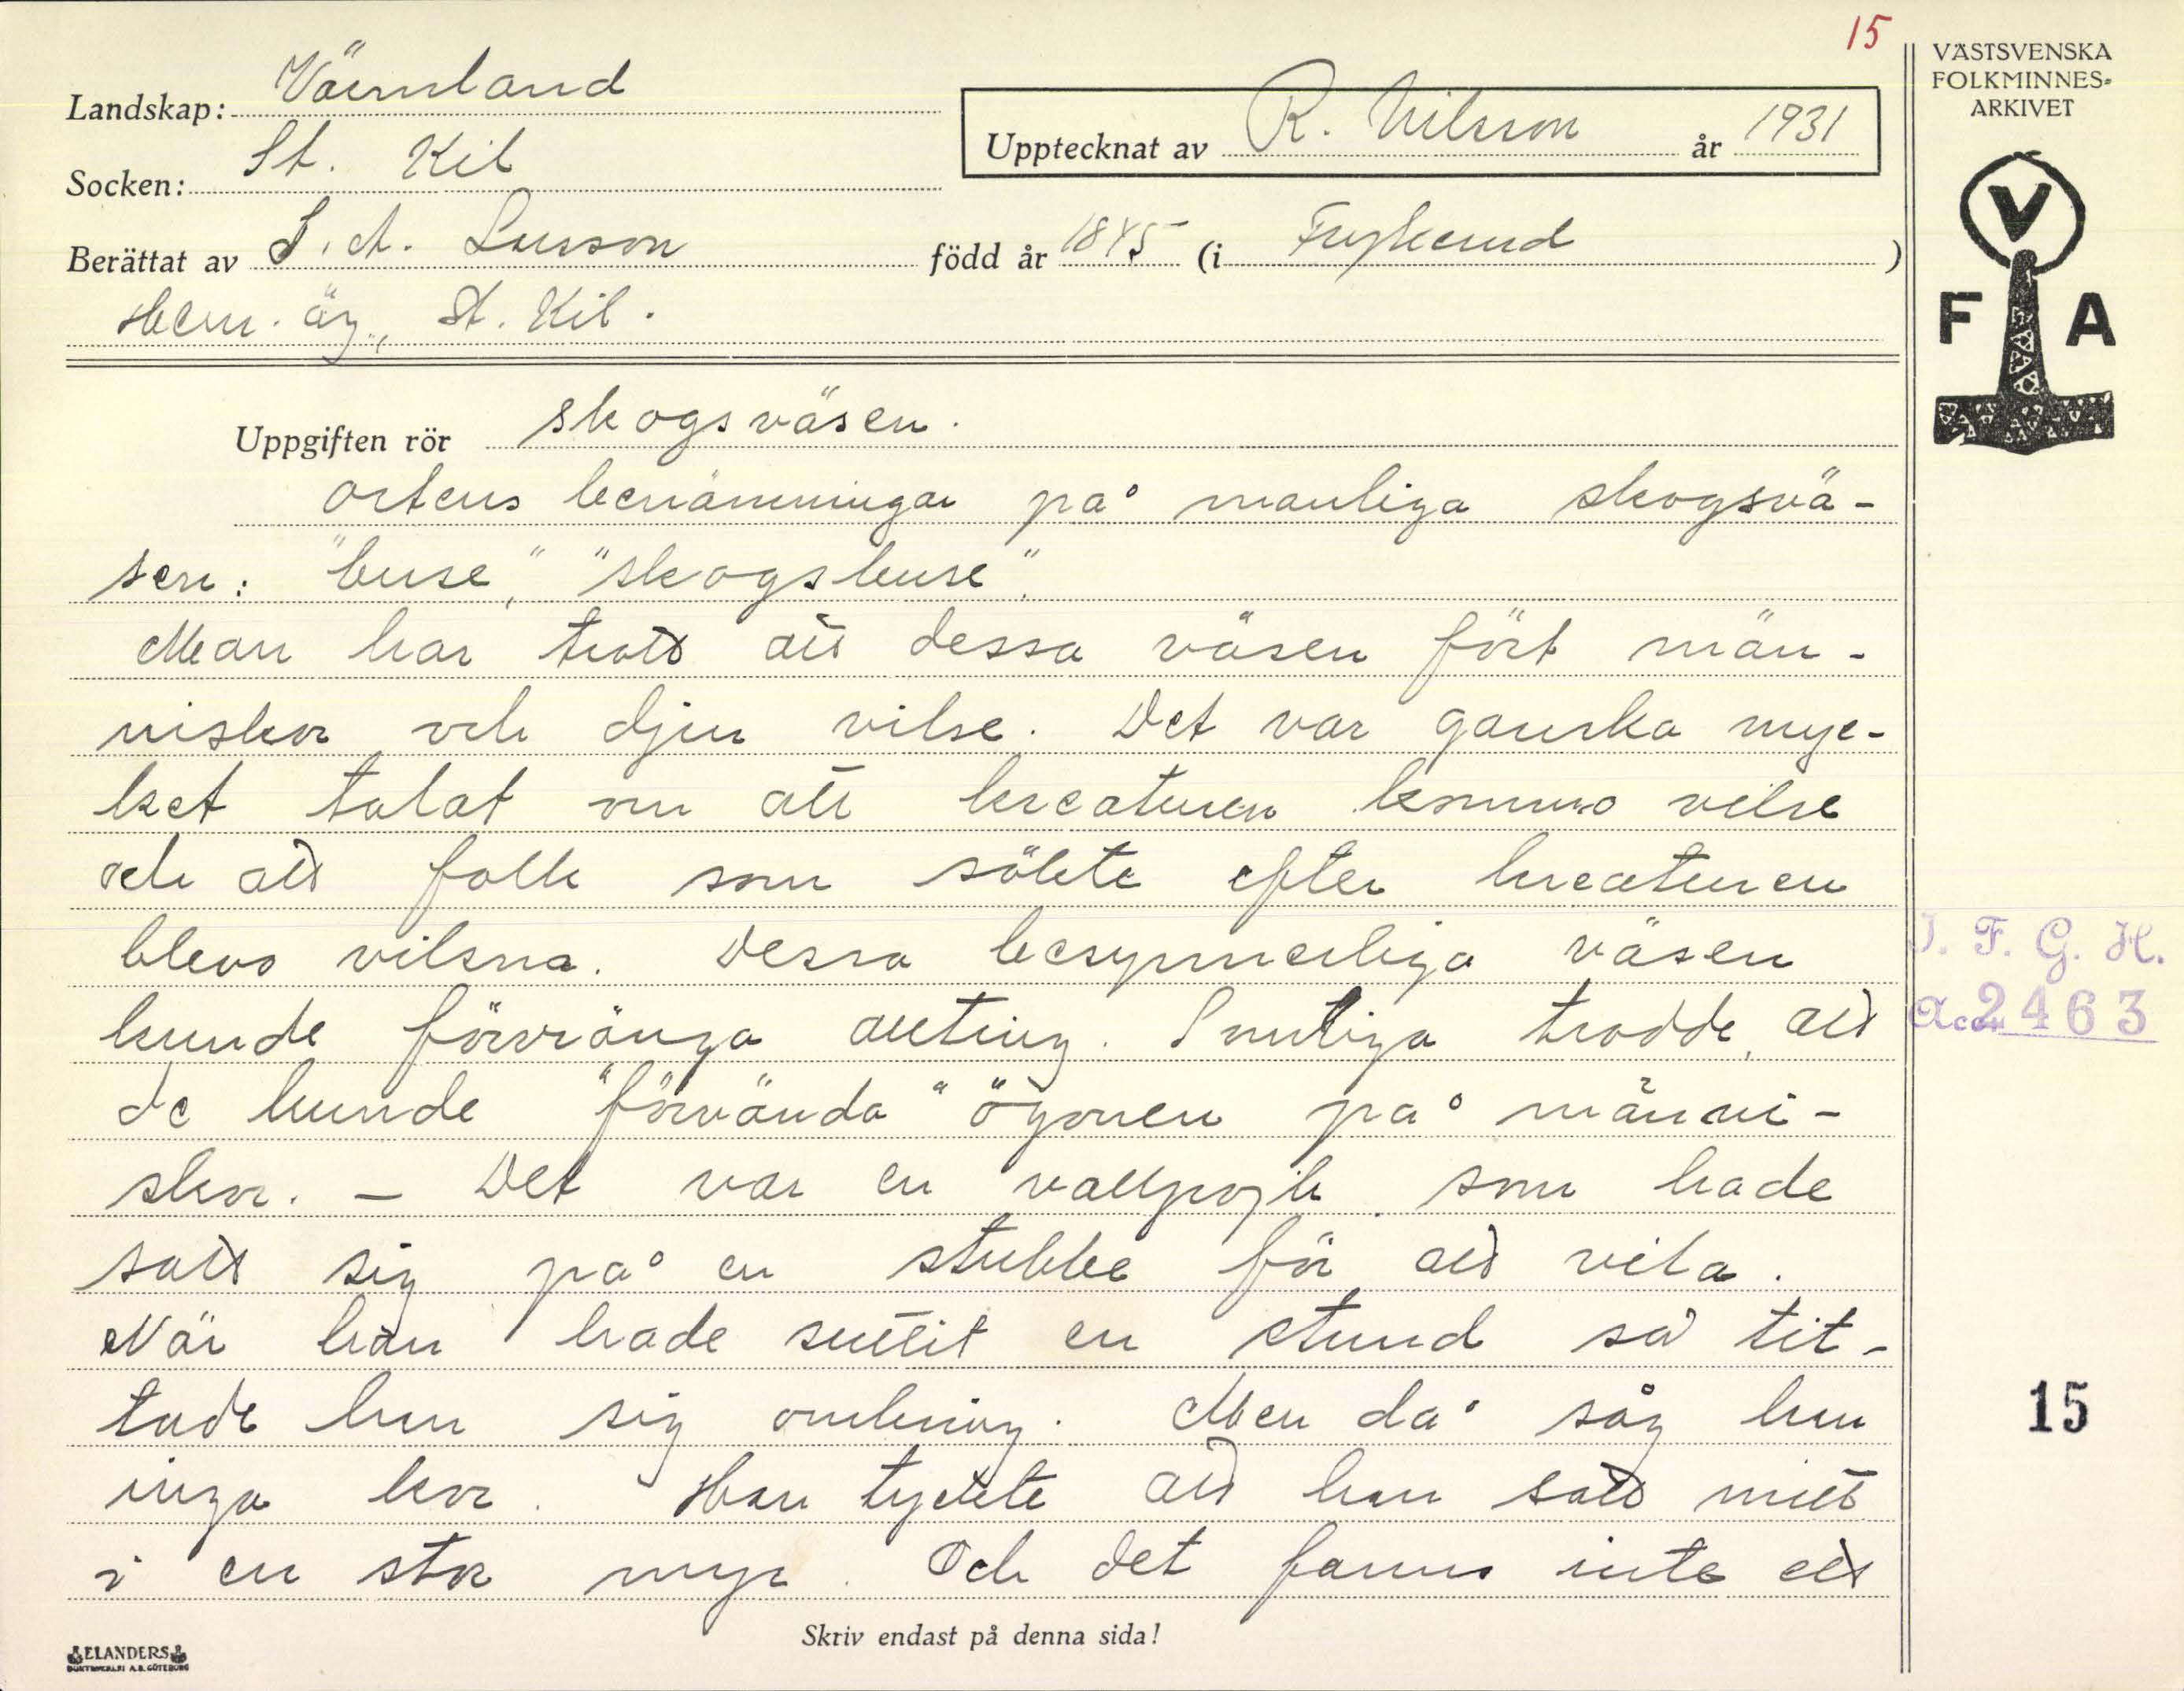 15
VÄSTSVENSKA
FOLKMINNES-
ARKIVET
Landskap: Värmland
Upptecknat av R. Nilsson år 1931
Socken: St. Kil
Berättat av S. A. Larsson född år 1845 (i Frykerud )
Hem. äg., St. Kil.
V
F A
Uppgiften rör skogsväsen.
Ortens benämningar på manliga skogsvä-
sen: "buse," "skogsbuse".
Man har trott att dessa väsen fört män-
niskor och djur vilse. Det var ganska myc-
ket talat om att kreaturen kommo vilse
och att folk som sökte efter kreaturen
blevo vilsna. Dessa besynnerliga väsen
kunde förvränga allting. Somliga trodde, att
de kunde "förvända" ögonen på männi-
skor. – Det var en vallpojk som hade
satt sig på en stubbe för att vila.
När han hade suttit en stund så tit-
tade han sig omkring. Men då såg han
inga kor. Han tyckte att han satt mitt
i en stor myr. Och det fanns inte ett
I. F. G. H.
Acc. 2463
15
Skriv endast på denna sida!
ELANDERS
BOKTRYCKERI A.B. GÖTEBORG